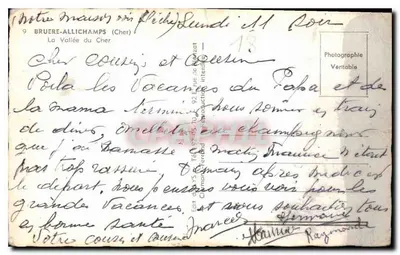 (notre maison
Lundi 11 Soir
9 BRUERE-ALLICHAMPS (Cher)
La Vallée du Cher
Photographie
Véritable
Cher cousin et cousine
Voila les Vacances du Papa et de
la mama terminé nous sommes en train
de diner, omelette aux champignons
que j'ai ramassé ce matin, Maurice n'était
pas trop rassuré
le départ, nous pensons vous voir pour les
grandes Vacances. et vous souhaitons tous
en bonne santé
Votre cousin et cousine Marcel Germaine
Maurice Raymonde